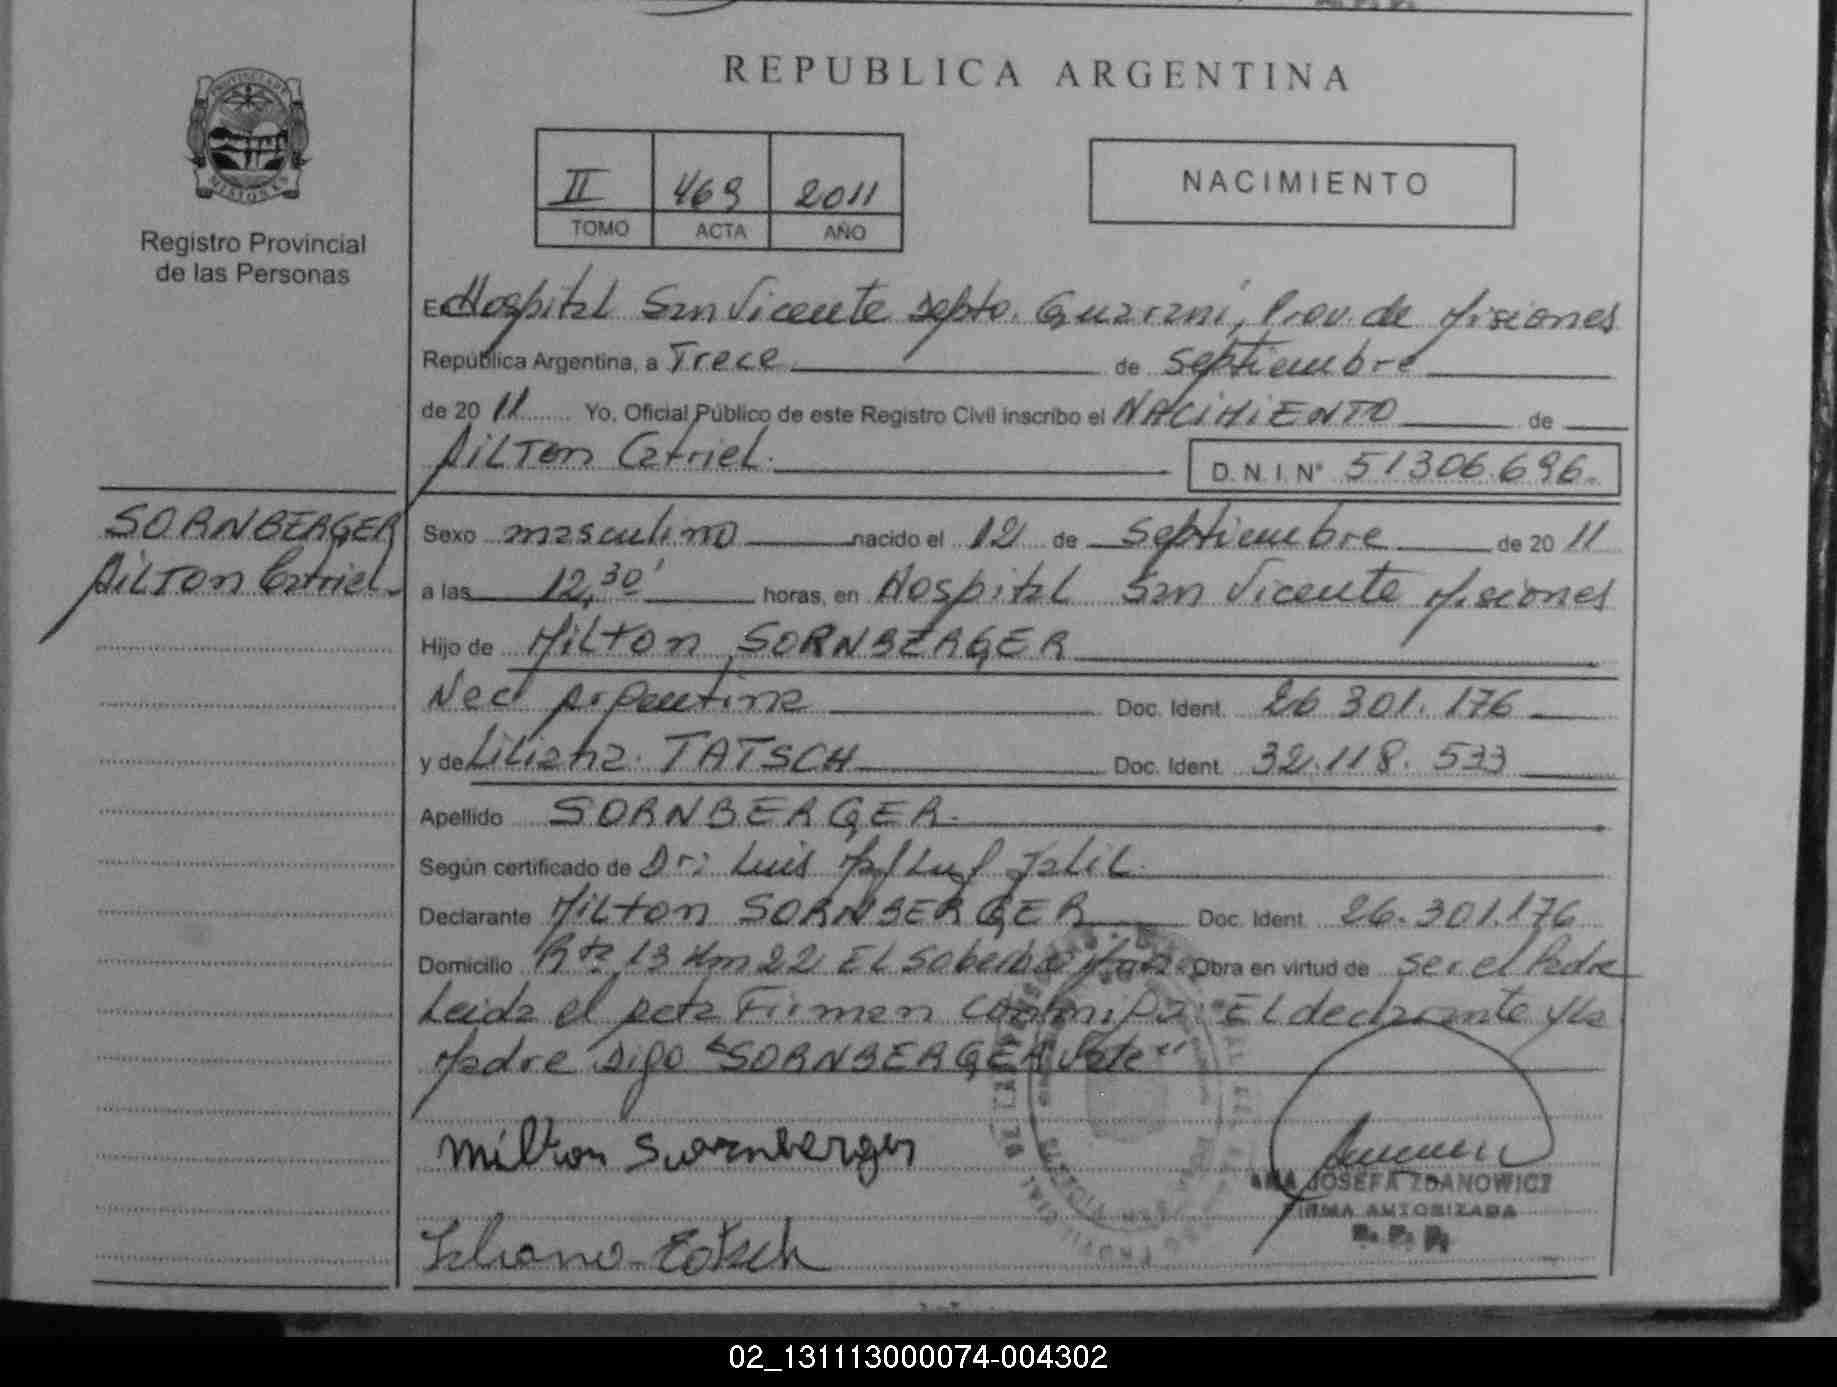 REPUBLICA ARGENTINA
II 469 2011
TOMO ACTA AÑO
NACIMIENTO
PROVINCIA DE
MISIONES
Registro Provincial
de las Personas
En Hospital San Vicente Depto. Guaraní, Prov. de Misiones
República Argentina, a Trece de Septiembre
de 20 11 Yo, Oficial Público de este Registro Civil inscribo el NACIMIENTO de
Ailton Catriel. D.N.I. Nº 51306.696.
SORNBERGER
Ailton Catriel
Sexo masculino nacido el 12 de Septiembre de 20 11
a las 12,30' horas, en Hospital San Vicente Misiones
Hijo de Milton SORNBERGER
Nac. Argentina Doc. Ident. 26 301.176
y de Liliana TATSCH Doc. Ident. 32.118.533
Apellido SORNBERGER
Según certificado de Dr: Luis Jalil
Declarante Milton SORNBERGER Doc. Ident. 26.301.176
Domicilio Rta 13 Km 22 El Soberbio Obra en virtud de ser el Padre
Leida el acta Firman Conmigo: El declarante y la
Madre Digo "SORNBERGER Vale"
Milton Sornberger
ANA JOSEFA ZDANOWICZ
FIRMA AUTORIZADA
R. P. P.
Liliana Tatsch
02_131113000074-004302